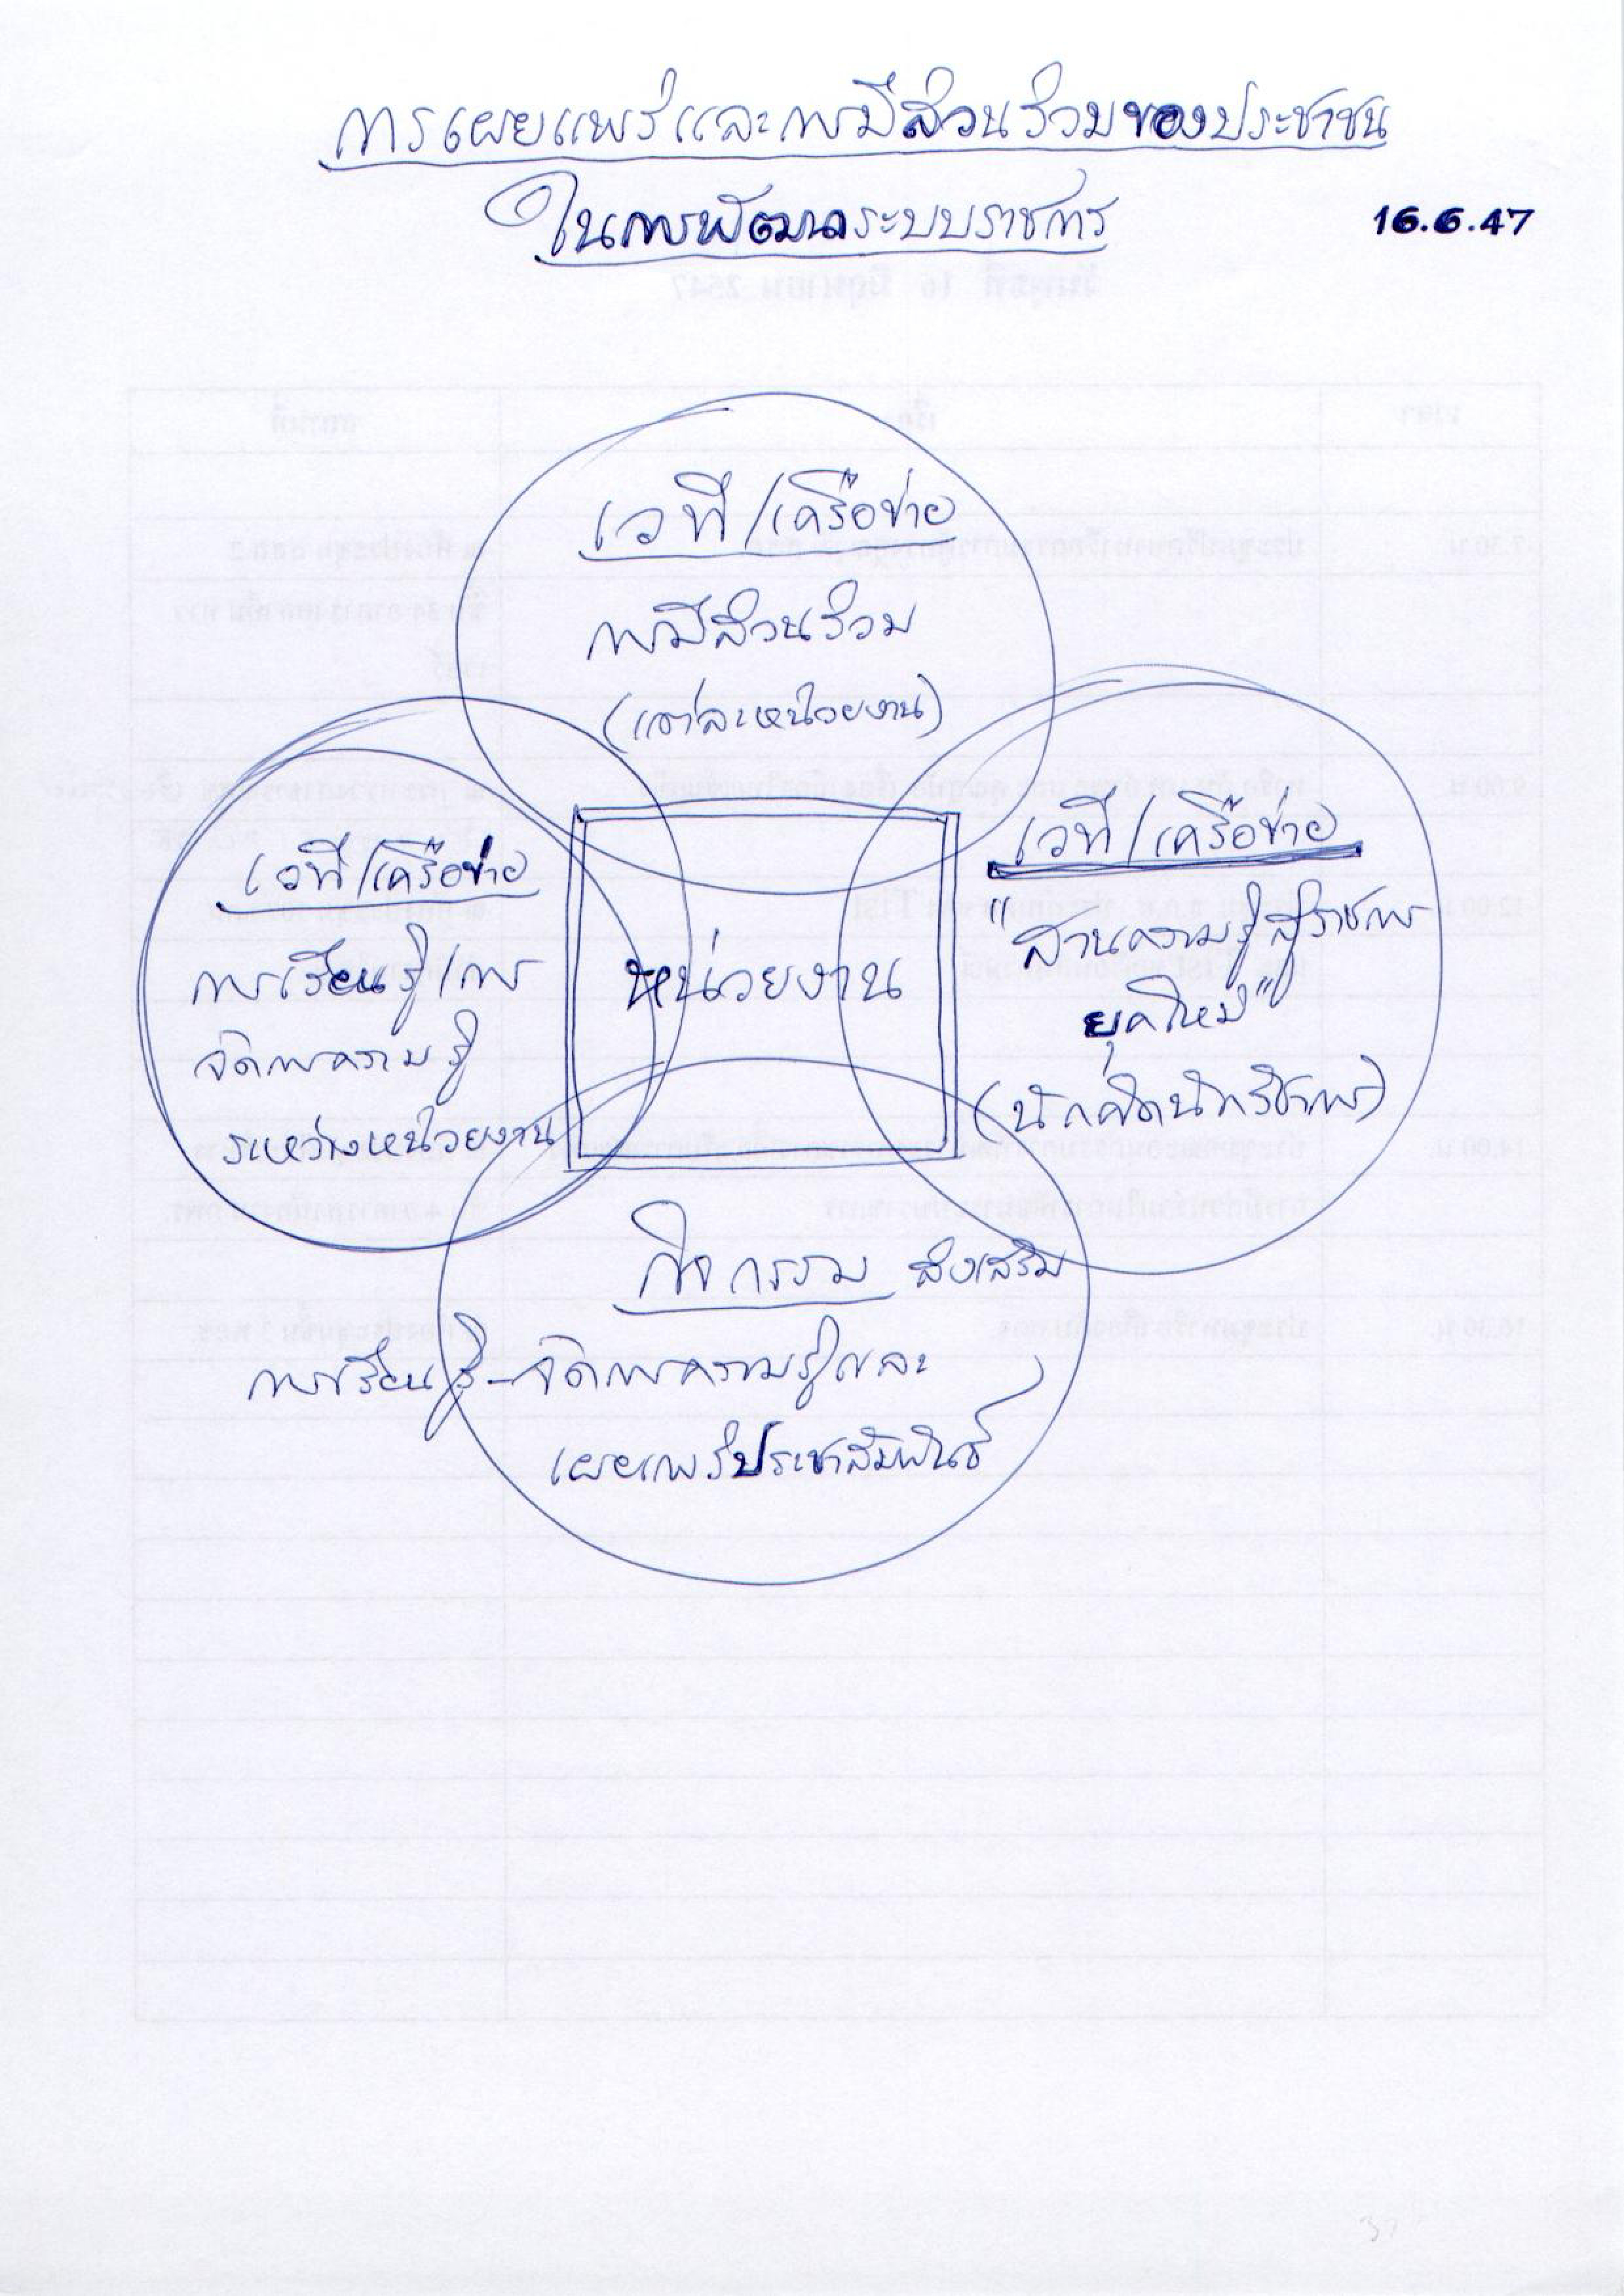 การเผยแพร่และการมีส่วนร่วมของประชาชน
ในการพัฒนาระบบราชการ
16.6.47
เวที/เครือข่าย
การมีส่วนร่วม
(แต่ละหน่วยงาน)
เวที/เครือข่าย
การเรียนรู้/การ
จัดการความรู้
ระหว่างหน่วยงาน
หน่วยงาน
เวที/เครือข่าย
"สานความรู้สู่ราชการ
ยุคใหม่"
(นักคิดนักวิชาการ)
กิจกรรม ส่งเสริม
การเรียนรู้-จัดการความรู้และ
เผยแพร่ประชาสัมพันธ์